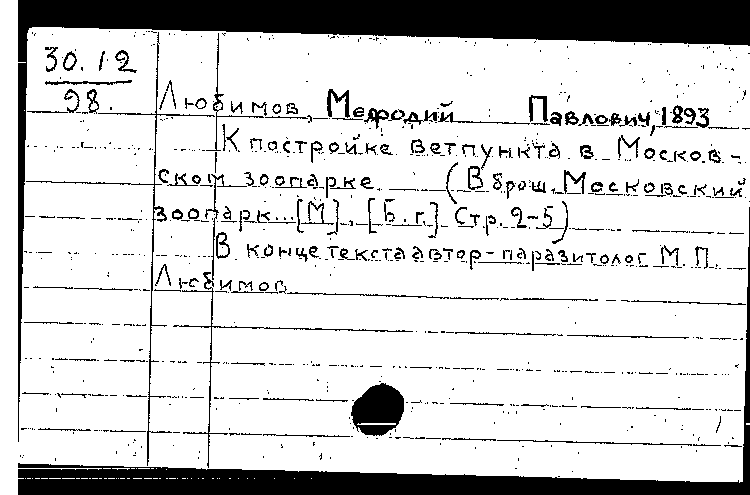 30.12
98.
Любимов, Мефодий Павлович, 1893
К постройке ветпункта в Москов-
ском зоопарке (В брош. Московский
зоопарк... [М], [Б.г.] Стр. 2-5)
В конце текста автор-паразитолог М.П.
Любимов